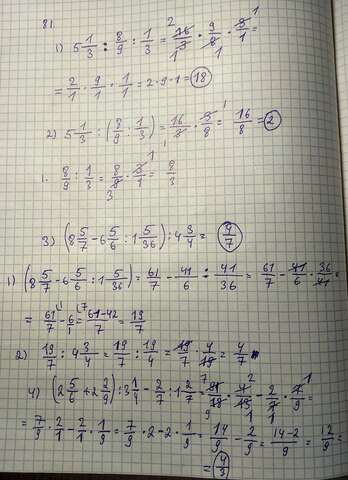 81.
1) 5 1/3 : 8/9 : 1/3 = 16/3 · 9/8 · 3/1 =
= 2/1 · 9/1 · 1/1 = 2·9·1 = 18
2) 5 1/3 : (8/9 : 1/3) = 16/3 · 3/8 = 16/8 = 2
1. 8/9 : 1/3 = 8/9 · 3/1 = 8/3
3) (8 5/7 - 6 5/6 : 1 5/36) : 4 3/4 = 4/7
1) (8 5/7 - 6 5/6 : 1 5/36) = 61/7 - 41/6 : 41/36 = 61/7 - 41/6 · 36/41 =
= 61/7 - 6/1 = 61-42/7 = 19/7
2) 19/7 : 4 3/4 = 19/7 : 19/4 = 19/7 · 4/19 = 4/7
4) (2 5/6 + 2 2/9) : 3 1/4 - 2/7 : 1 2/7 = · 4/13 - 2/7 · 7/9 =
= 7/9 · 2/1 - 2/1 · 1/9 = 7/9 · 2 - 2 · 1/9 = 14/9 - 2/9 = 14-2/9 = 12/9 =
= 4/3